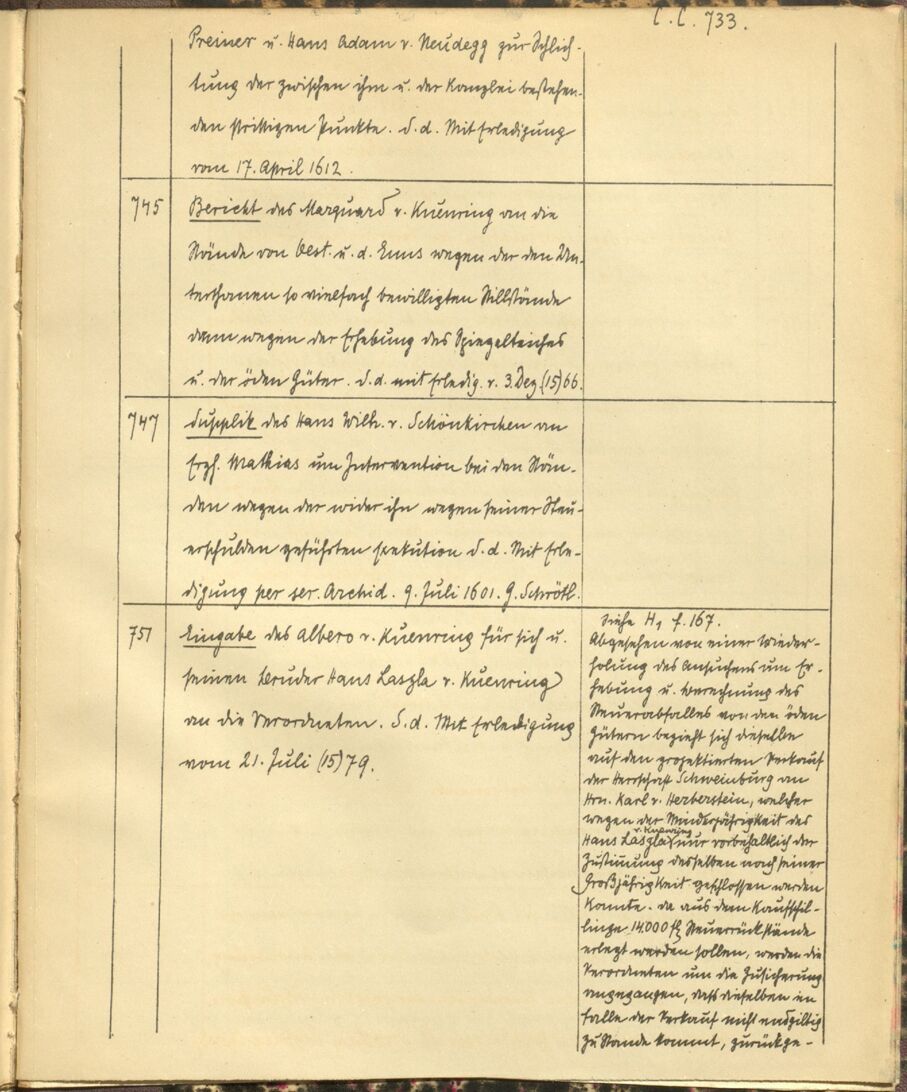 C. C. 733.
Preiner u. Hans Adam v. Neudegg zur Schlich-
tung der zwischen ihm u. der Kanzlei bestehen-
den strittigen Punkte. S. d. Mit Erledigung
vom 17. April 1612.
745 Bericht des Marquard v. Kuenring an die
Stände von Oest. u. d. Enns wegen der den Un-
terthanen so vielfach bewilligten Stillstände
dann wegen der Erhebung des Spiegelteiches
u. der öden Güter. S. d. mit Erledig. v. 3. Dez (15)66.
747 Supplik des Hans Wilh. v. Schönkirchen an
Erzh. Mathias um Intervention bei den Stän-
den wegen der wider ihn wegen seiner Steu-
erschulden geführten Exekution S. d. Mit Erle-
digung per ser. Archid. 9. Juli 1601. G. Schrötl.
751 Eingabe des Albero v. Kuenring für sich u.
seinen Bruder Hans Laszla v. Kuenring
an die Verordneten. S. d. Mit Erledigung
vom 21. Juli (15)79.
Siehe H, f. 167.
Abgesehen von einer Wieder-
holung des Ansuchens um Er-
hebung u. Berechnung des
Steuerabfalles von den öden
Gütern bezieht sich dieselbe
auf den projektierten Verkauf
der Herrschaft Schweinburg an
Hrn. Karl v. Herberstein, welcher
wegen der Minderjährigkeit des
Hans Laszla v. Kuenring nur vorbehaltlich der
Zustimmung desselben nach seiner
Großjährigkeit geschlossen werden
konnte. Da aus dem Kaufschil-
linge 14.000 fl Steuerrückstände
erlegt werden sollen, werden die
Verordneten um die Zusicherung
angegangen, daß dieselben im
Falle der Verkauf nicht endgiltig
zu Stande kommt, zurückge-